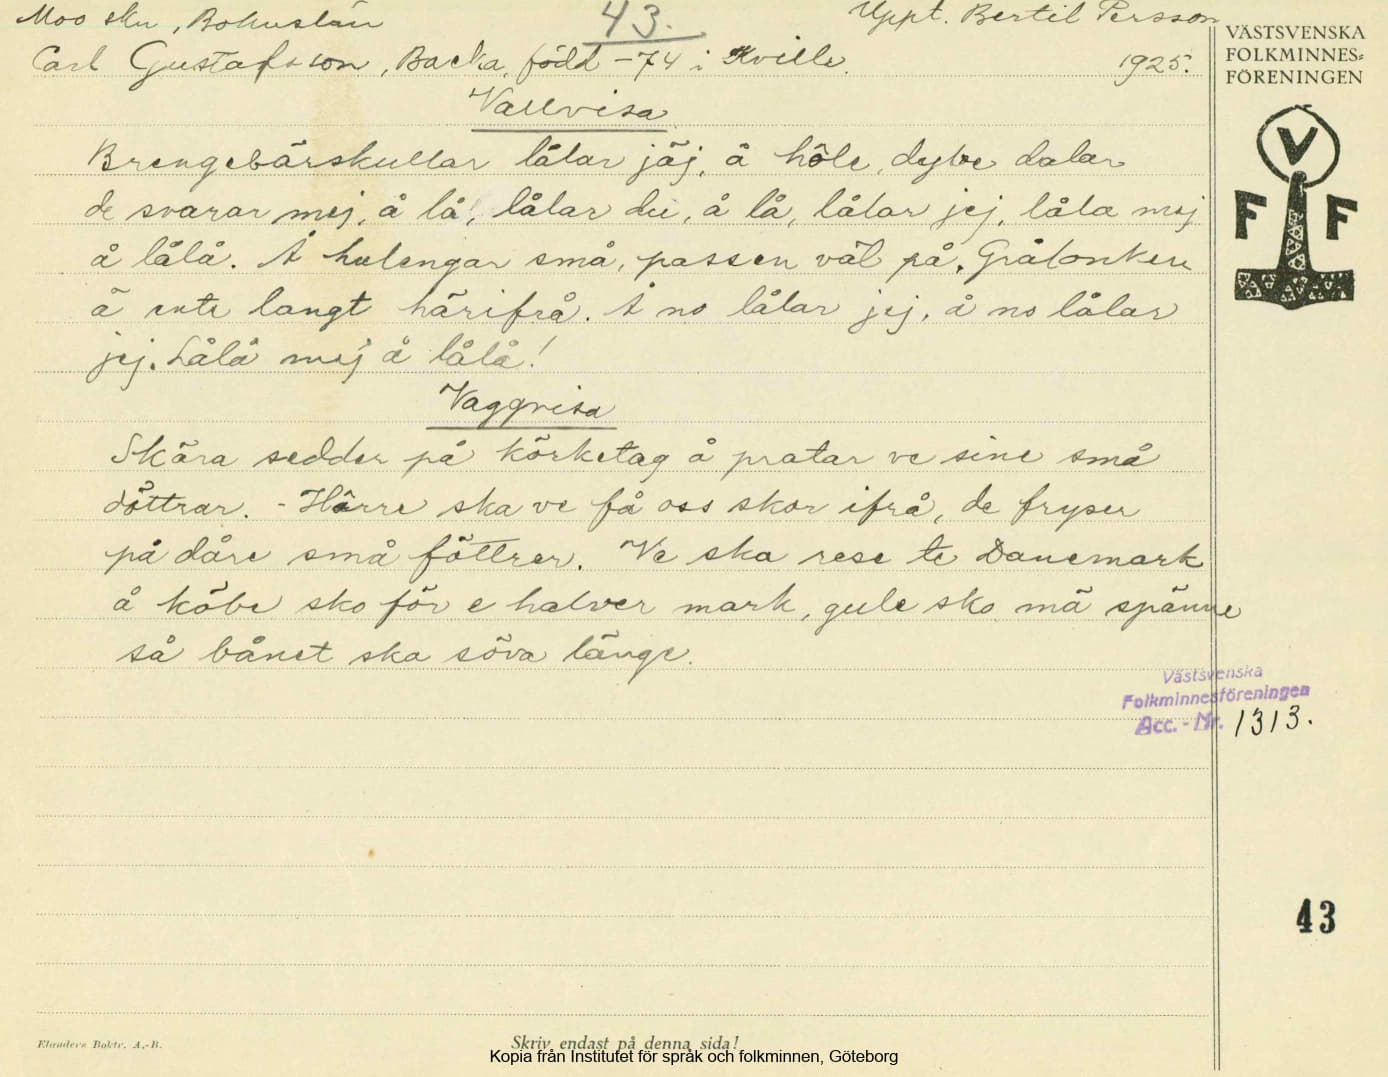 Moo sku, Bohuslän
43.
Uppt. Bertil Persson
Carl Gustafsson, Backa, född -74 i Kville.
1925.
VÄSTSVENSKA
FOLKMINNES=
FÖRENINGEN
V
F F
Vallvisa
Brengebärskullar lålar jäj, å hôle, dybe dalar
de svarar mej, å lå, lålar du, å lå, lålar jej, låla mej
å lålå. Å hulengar små, passen väl på. Gråbonken
ä ente langt härifrå. Å no lålar jej, å no lålar
jej. Lålå mej å lålå!
Vaggvisa
Skära sedder på körketag å pratar ve sine små
döttrar. - Hårre ska ve få oss skor ifrå, de fryser
på dåre små föttrer. Ve ska rese te Danemark
å köbe sko för e halver mark, gule sko mä spänne
så bånet ska söva länge.
Västsvenska
Folkminnesföreningen
Acc.-Nr. 1313.
43
Elanders Boktr. A.-B.
Skriv endast på denna sida!
Kopia från Institutet för språk och folkminnen, Göteborg